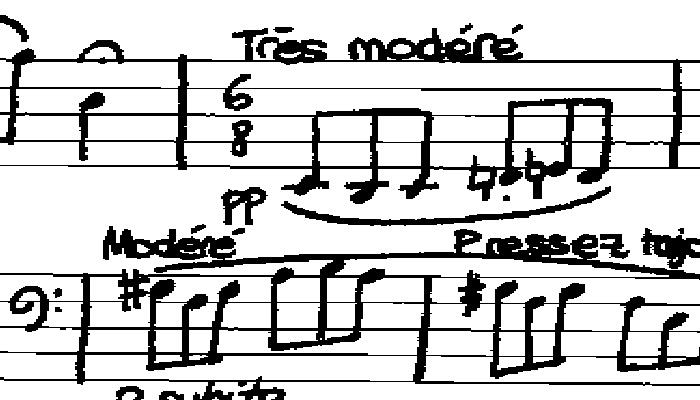 Très modéré
6
8
pp
Modéré Pressez
subito